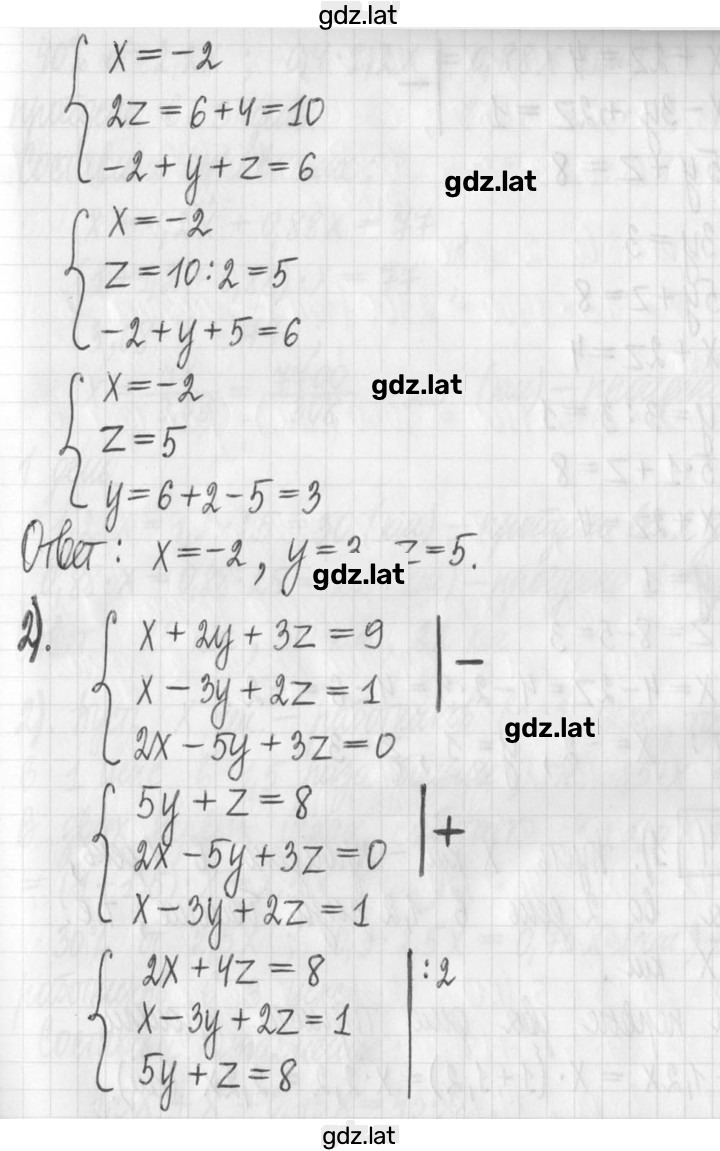 gdz.lat
x = -2
2z = 6 + 4 = 10
-2 + y + z = 6
gdz.lat
x = -2
z = 10 : 2 = 5
-2 + y + 5 = 6
gdz.lat
x = -2
z = 5
y = 6 + 2 - 5 = 3
Ответ: x = -2, y = 3, z = 5.
gdz.lat
2). x + 2y + 3z = 9 | -
x - 3y + 2z = 1
gdz.lat
2x - 5y + 3z = 0
5y + z = 8 | +
2x - 5y + 3z = 0
x - 3y + 2z = 1
2x + 4z = 8 | : 2
x - 3y + 2z = 1
5y + z = 8
gdz.lat